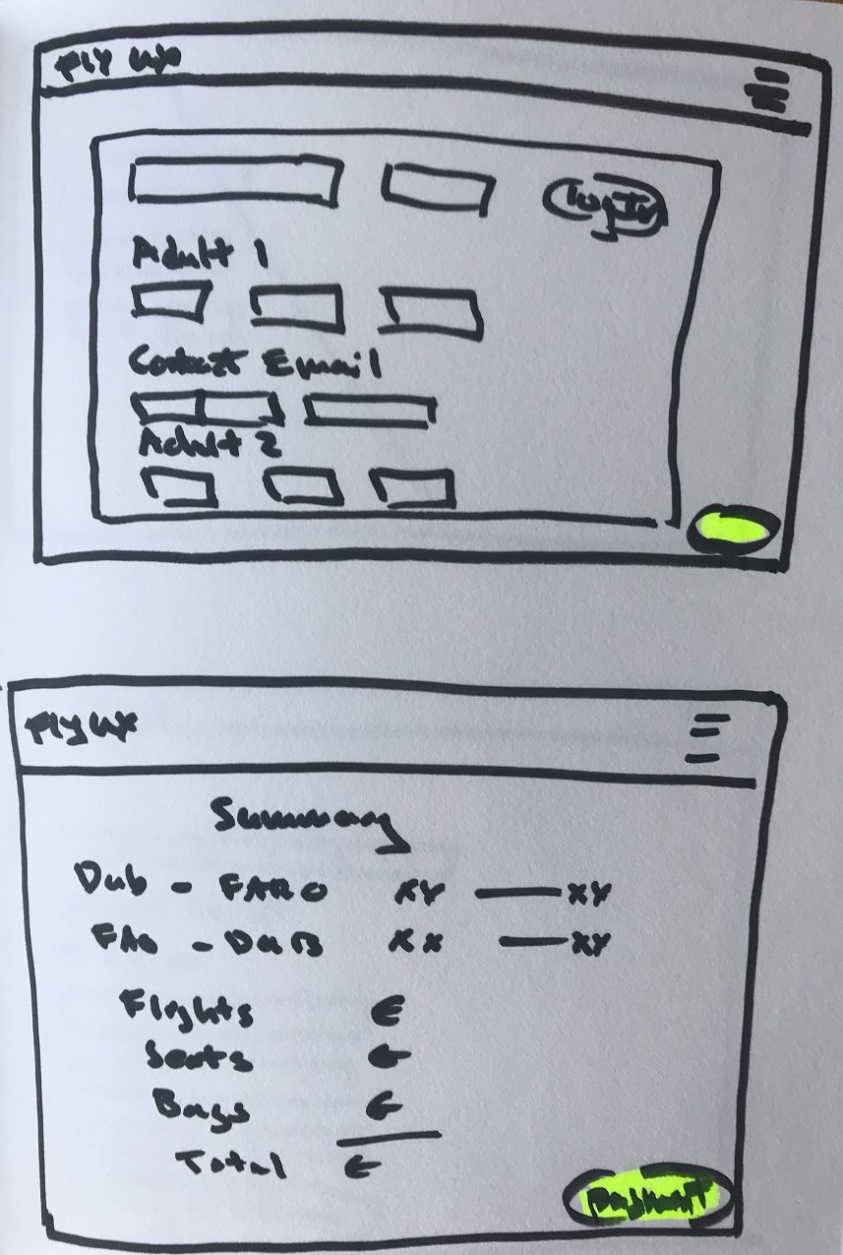 FLY UX
LogIn
Adult 1
Contact Email
Adult 2
Fly UX
Summary
Dub - FARO XY — XY
FAO - DUB XX — XY
Flights €
Seats €
Bags €
Total €
payment